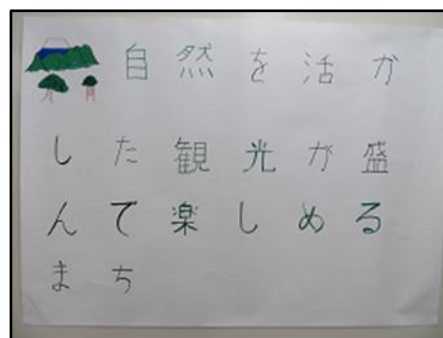 自然を活か
した観光が盛
んで楽しめる
まち